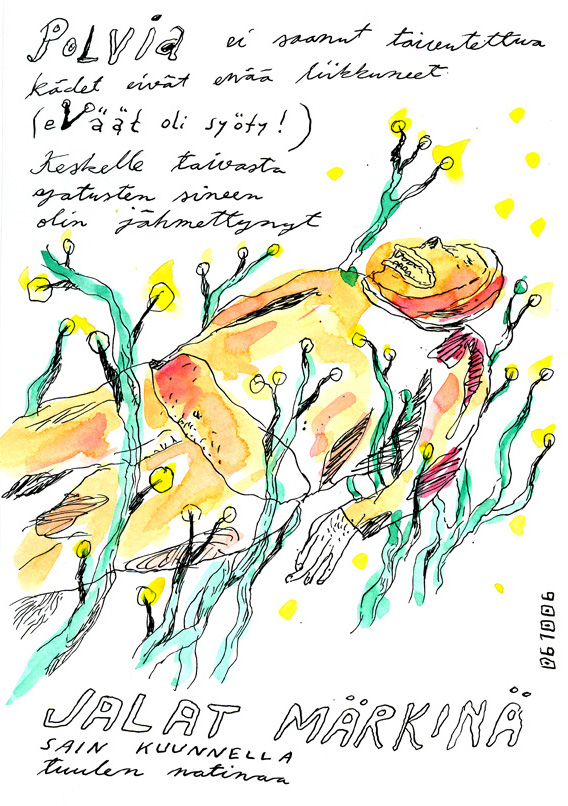 PoLVia ei saanut taivutettua
kädet eivät enää liikkuneet
(eVäät oli syöty!)
Keskelle taivasta
ajatusten sineen
olin jähmettynyt
061006
JALAT MÄRKINÄ
SAIN KUUNNELLA
tuulen natinaa